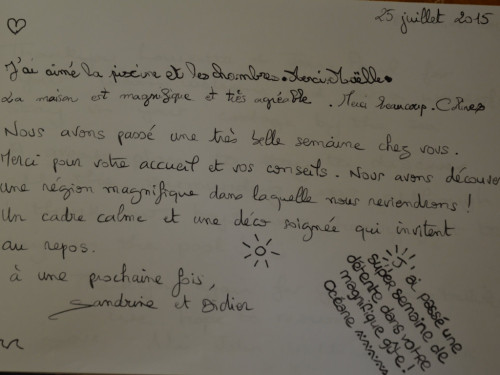 25 juillet 2015
J'ai aimé la piscine et les chambres. Merci. Maëlle.
La maison est magnifique et très agréable. Merci beaucoup.
Nous avons passé une très belle semaine chez vous.
Merci pour votre accueil et vos conseils. Nous avons découvert
une région magnifique dans laquelle nous reviendrons !
Un cadre calme et une déco soignée qui invitent
au repos.
à une prochaine fois,
Sandrine et Didier
J'ai passé une
super semaine de
détente dans votre
magnifique gîte !
Océane